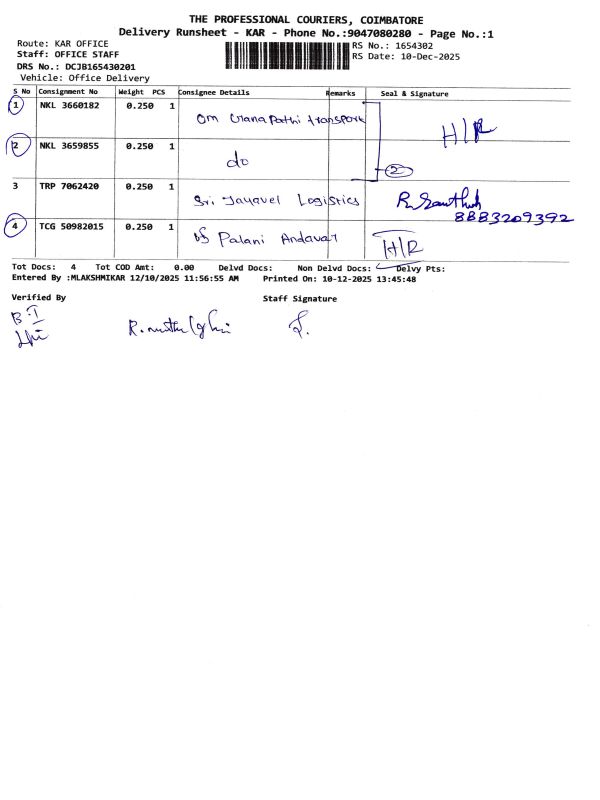 THE PROFESSIONAL COURIERS, COIMBATORE
Delivery Runsheet - KAR - Phone No.:9047080280 - Page No.:1
Route: KAR OFFICE
RS No.: 1654302
Staff: OFFICE STAFF
RS Date: 10-Dec-2025
DRS No.: DCJB165430201
Vehicle: Office Delivery
S No Consignment No Weight PCS Consignee Details Remarks Seal & Signature
1 NKL 3660182 0.250 1 Om Ganapathi transport H/R
2 NKL 3659855 0.250 1 do 2
3 TRP 7062420 0.250 1 Sri Jayavel Logistics
8883209392
4 TCG 50982015 0.250 1 Palani Andavar H/R
Tot Docs: 4 Tot COD Amt: 0.00 Delvd Docs: Non Delvd Docs: Delvy Pts:
Entered By :MLAKSHMIKAR 12/10/2025 11:56:55 AM Printed On: 10-12-2025 13:45:48
Verified By Staff Signature